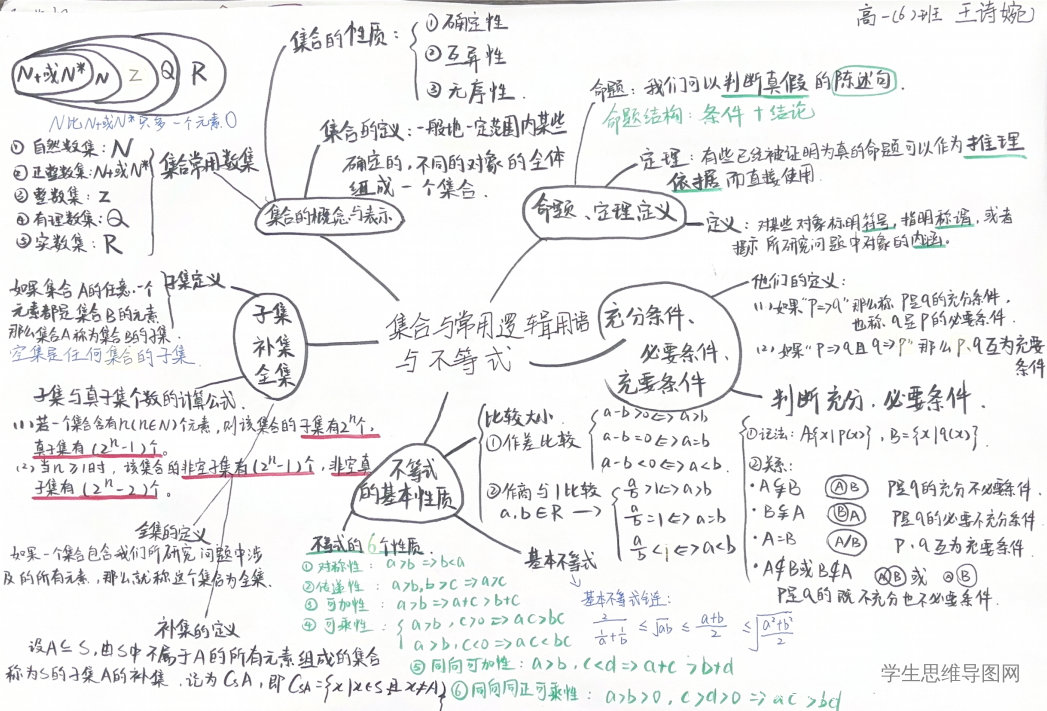 高一(6)班 王诗婉
集合与常用逻辑用语
与不等式
集合的概念与表示
集合的性质：
①确定性
②互异性
③无序性.
集合的定义：一般地一定范围内某些
确定的，不同的对象的全体
组成一个集合.
集合常用数集
N+或N* N Z Q R
N比N+或N*只多一个元素0
①自然数集：N
②正整数集：N+或N*
③整数集：Z
④有理数集：Q
⑤实数集：R
命题、定理、定义
命题：我们可以判断真假的陈述句.
命题结构：条件＋结论
定理：有些已经被证明为真的命题可以作为推理
依据而直接使用.
定义：对某些对象标明符号，指明称谓，或者
揭示所研究问题中对象的内涵。
子集
补集
全集
子集定义
如果集合A的任意一个
元素都是集合B的元素
那么集合A称为集合B的子集.
空集是任何集合的子集
子集与真子集个数的计算公式.
(1)若一个集合含有n(n∈N)个元素，则该集合的子集有2ⁿ个，
真子集有(2ⁿ-1)个。
(2)当n≥1时，该集合的非空子集有(2ⁿ-1)个，非空真
子集有(2ⁿ-2)个。
全集的定义
如果一个集合包含我们所研究问题中涉
及的所有元素，那么就称这个集合为全集.
补集的定义
设A⊆S，由S中不属于A的所有元素组成的集合
称为S的子集A的补集.记为CsA，即CsA={x|x∈S，且x≠A}
充分条件、
必要条件、
充要条件
他们的定义：
(1)如果"P=>q"那么称P是q的充分条件，
也称q是P的必要条件.
(2)如果"P=>q且q=>P"那么P、q互为充要
条件
判断充分.必要条件.
①记法：A{x|p(x)}，B={x|q(x)}.
②关系：
·A⫋B AB P是q的充分不必要条件.
·B⫋A BA P是q的必要不充分条件.
·A=B A/B P、q互为充要条件.
·A⊈B或B⊈A AB或 AB
P是q的既不充分也不必要条件.
不等式
的基本性质
比较大小
①作差比较
a-b>0<=>a>b
a-b=0<=>a=b
a-b<0<=>a<b.
②作商与1比较
a,b∈R →
a/b>1<=>a>b
a/b=1<=>a=b
a/b<1<=>a<b
基本不等式
基本不等式链：
2/(1/a+1/b) ≤ √ab ≤ (a+b)/2 ≤ √((a²+b²)/2)
不等式的6个性质.
①对称性：a>b=>b<a
②传递性：a>b,b>c=>a>c
③可加性：a>b=>a+c>b+c
④可乘性：a>b,c>0=>ac>bc
a>b,c<0=>ac<bc
⑤同向可加性：a>b,c<d=>a+c>b+d
⑥同向同正可乘性：a>b>0,c>d>0=>ac>bd
学生思维导图网